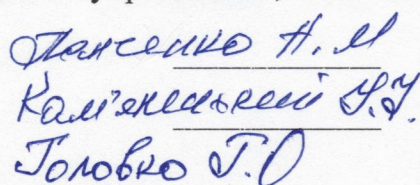 Панченко Н. М
Кам'янський У.У.
Головко Г.О